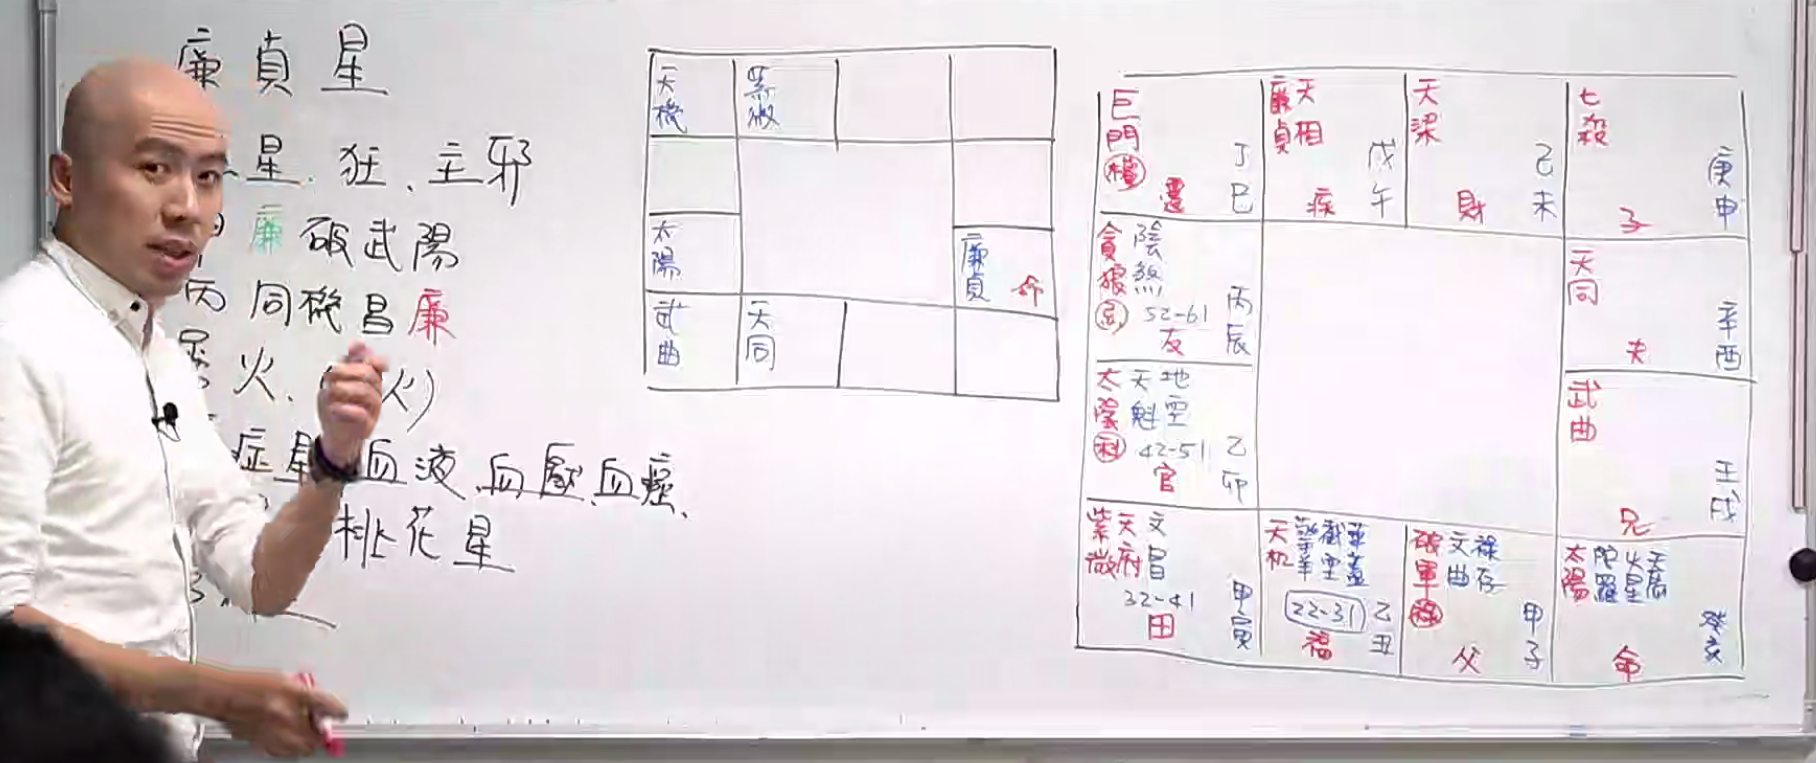 廉貞星
星、狂、主邪
廉破武陽
丙同機昌廉
火、火)
症星 血液、血壓、血癌、
桃花星
天機
紫微
太陽
廉貞 命
武曲
天同
巨門 權 遷 丁巳
廉貞 天相 疾 戊午
天梁 財 己未
七殺 子 庚申
貪狼 陰煞 忌 52-61 友 丙辰
天同 夫 辛酉
太陰 天魁 地空 科 42-51 官 乙卯
武曲 兄 壬戌
紫微 天府 文昌 32-41 田 甲寅
天机 擎羊 截空 華蓋 22-31 福 乙丑
破軍 文曲 祿存 祿 父 甲子
太陽 陀羅 火星 命 癸亥